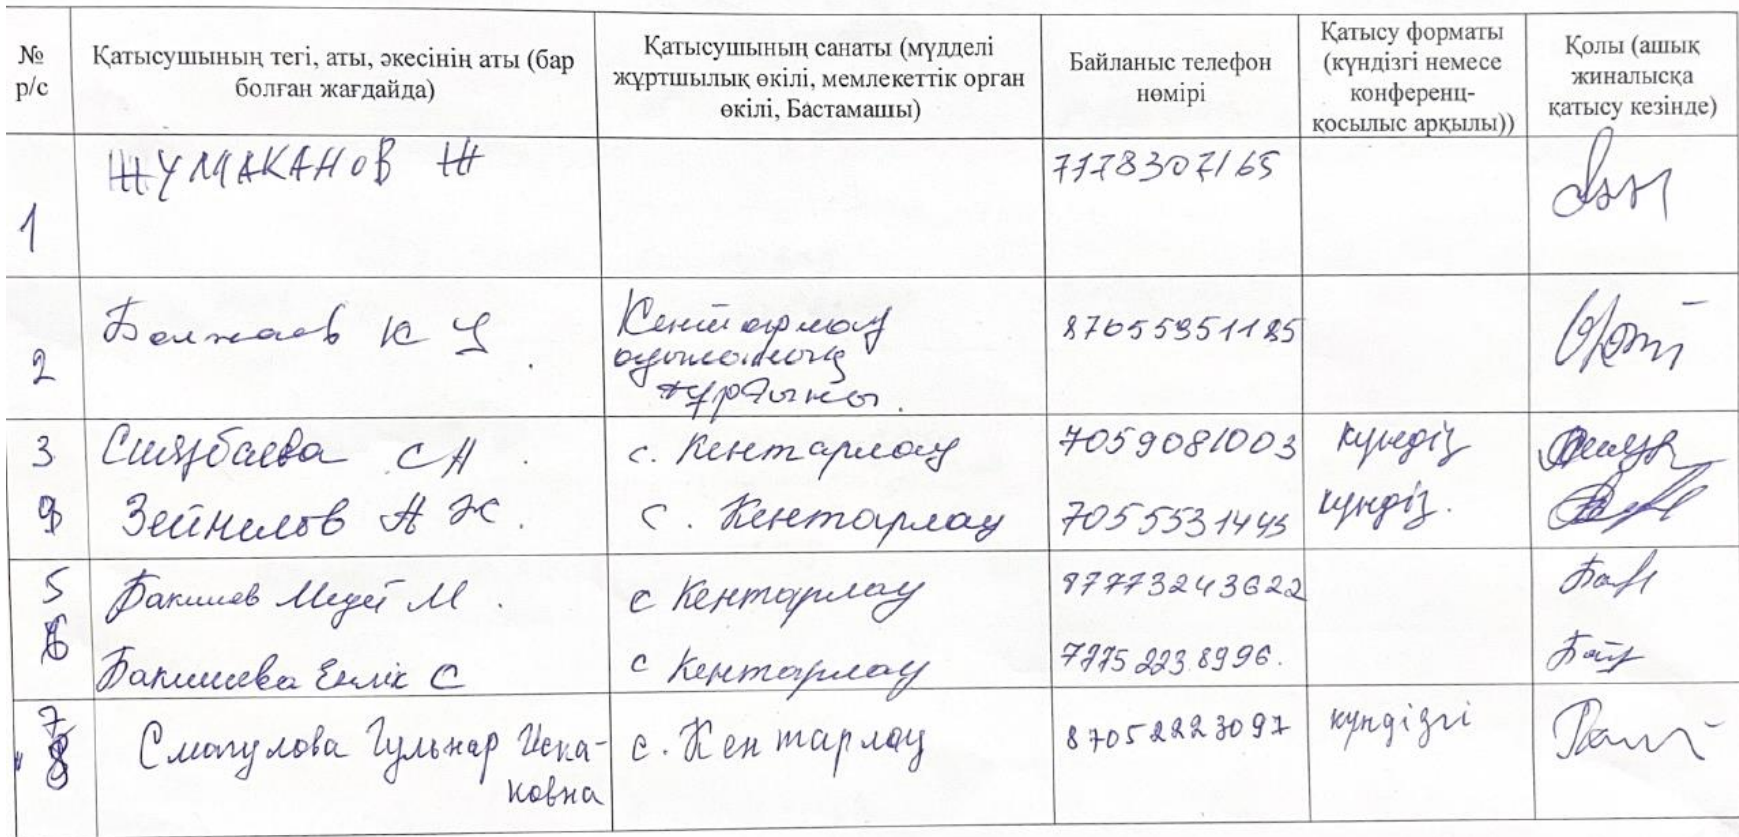 № р/с
Қатысушының тегі, аты, әкесінің аты (бар болған жағдайда)
Қатысушының санаты (мүдделі жұртшылық өкілі, мемлекеттік орган өкілі, Бастамашы)
Байланыс телефон нөмірі
Қатысу форматы (күндізгі немесе конференц-қосылыс арқылы))
Қолы (ашық жиналысқа қатысу кезінде)
1 ЖУМАКАНОВ Ж 7178307165
2 Болжаев К
Кентарлау
ауылының
тұрғыны.
87055351185
3 Сиязбаева СА. с. Кентарлау 7059081003 күндіз
Зейнелов А Ж. с. Кентарлау 7055531445 күндіз.
5 Бакишев Медет М. с Кентарлау 87773243622
6 Бакишева Еңлік С с Кентарлау 7775 223 8996.
7 Смагулова Гульнар Иска-
ковна
с. Кентарлау 87052223097 күндізгі